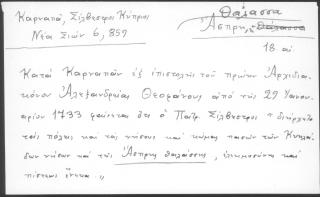 Καρναπᾶ, Σίλβεστρος Κύπριος
Νέα Σιών 6, 857
Θάλασσα
Ἄσπρη, θάλασσα
18 αἰ.
Κατὰ Καρναπᾶν ἐξ ἐπιστολῆς τοῦ πρώην Ἀρχιδια-
κόνου Ἀλεξανδρείας Θεοφάνους ἀπὸ τῆς 27 Ἰανου-
αρίου 1733 φαίνεται ὅτι ὁ Πατρ. Σίλβεστρος "διήρχετο
τὰς πόλεις καὶ τὰς νήσους καὶ κώμας πασῶν τῶν Κυκλά-
δων νήσων καὶ τῆς Ἄσπρης θαλάσσης, ἐλεημοσύνης καὶ
πίστεως ἕνεκα"